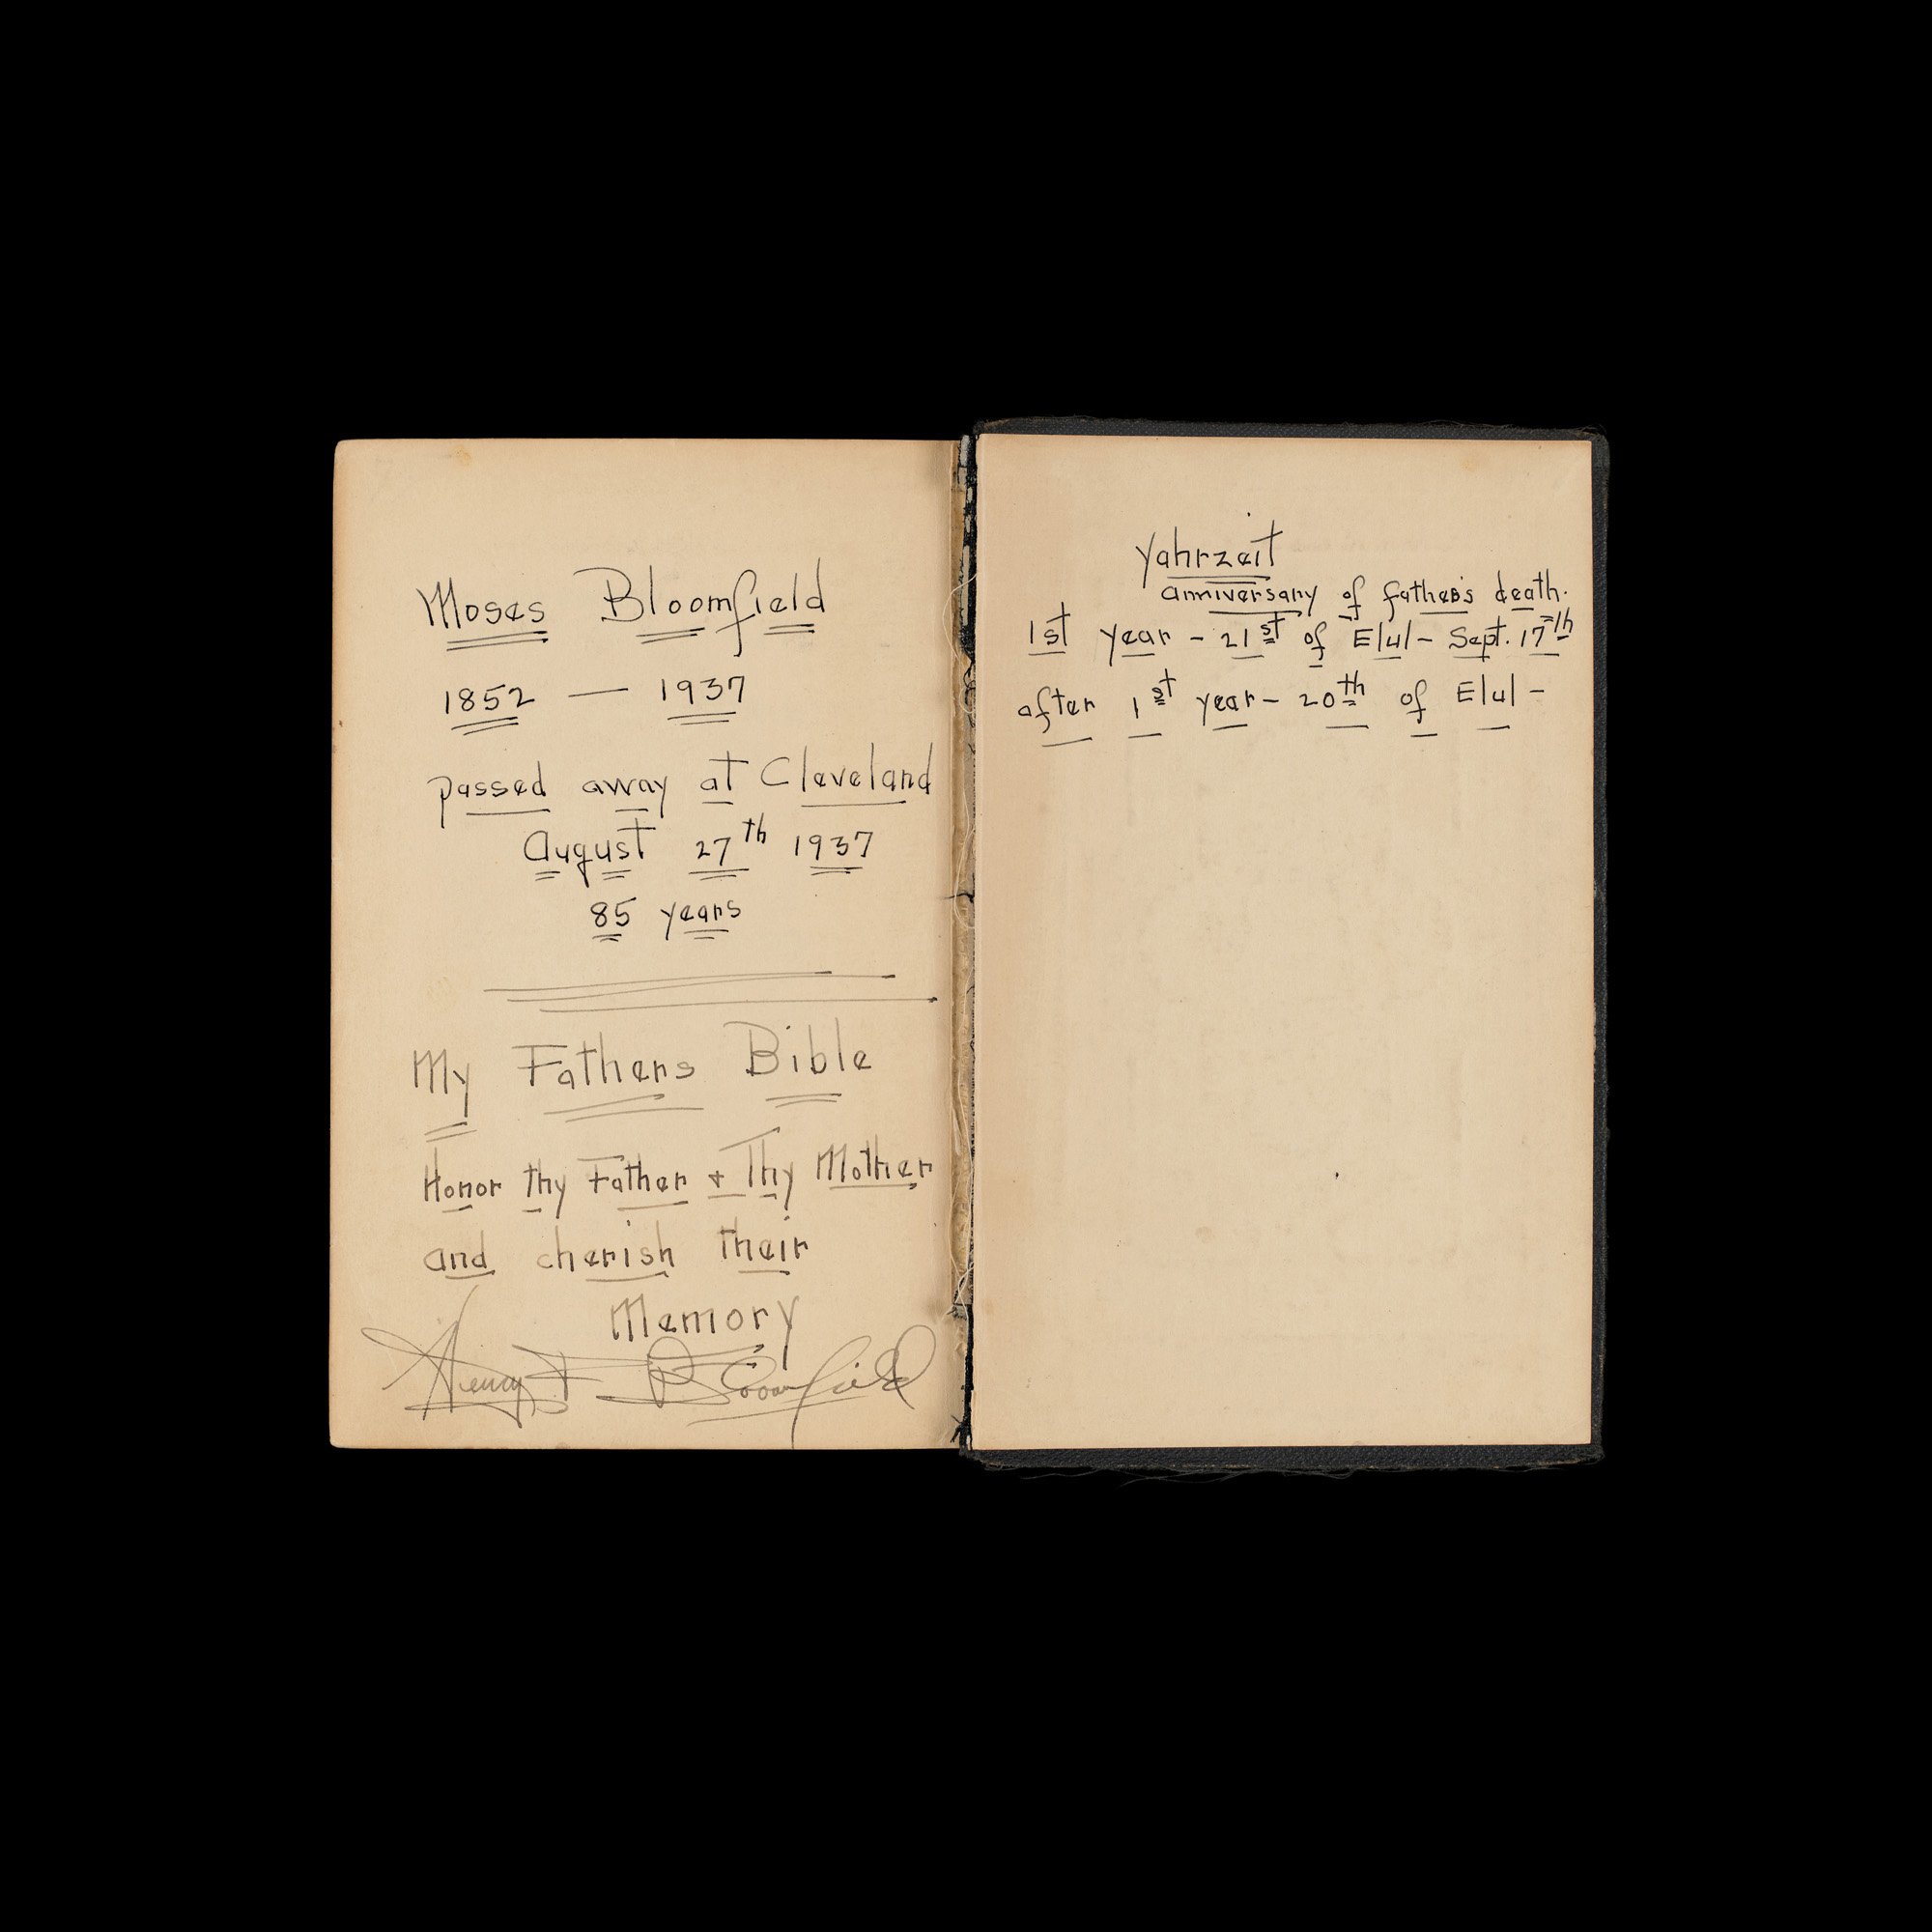 Moses Bloomfield
1852 — 1937
passed away at Cleveland
August 27th 1937
85 years
My Fathers Bible
Honor thy Father + Thy Mother
and cherish their
Memory
Henry Bloomfield
Yahrzeit
anniversary of father's death.
1st year - 21st of Elul - Sept. 17th
after 1st year - 20th of Elul -